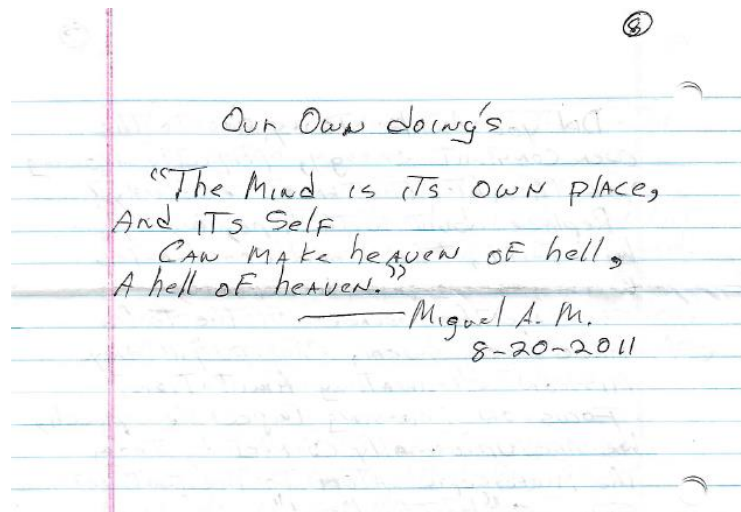 8
Our Own doing's
"The Mind is iTs OWN plAce,
And iTs Self
CAN MAke heAven of hell,
A hell of heAven."
Miguel A. M.
8-20-2011